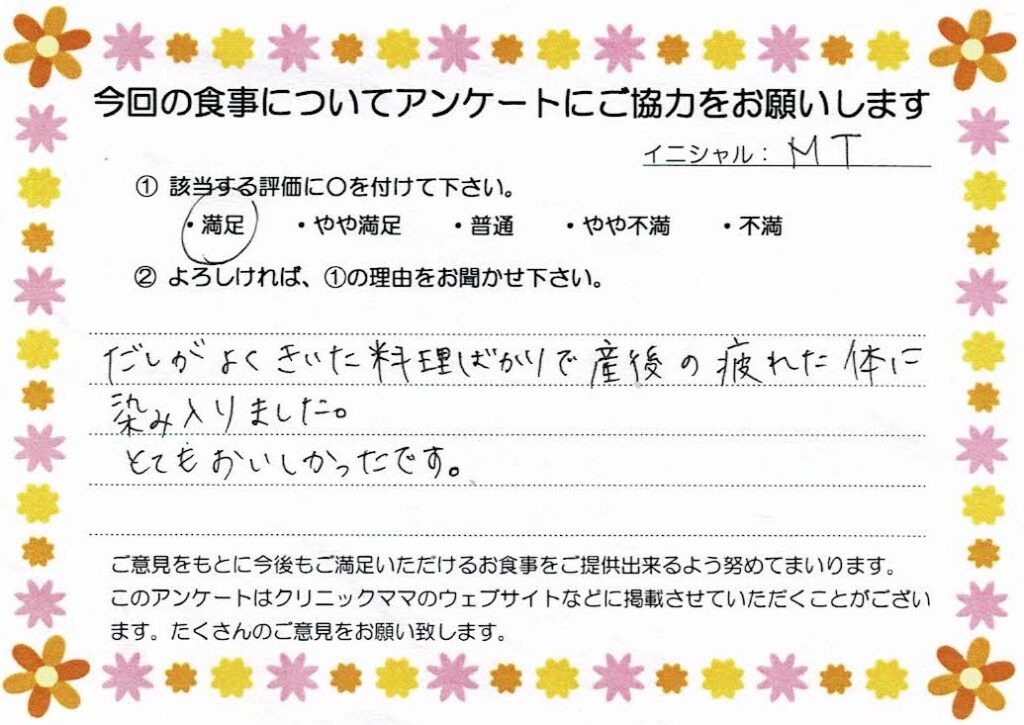 今回の食事についてアンケートにご協力をお願いします
イニシャル： MT
① 該当する評価に〇を付けて下さい。
・満足 ・やや満足 ・普通 ・やや不満 ・不満
② よろしければ、①の理由をお聞かせ下さい。
だしがよくきいた料理ばかりで産後の疲れた体に
染み入りました。
とてもおいしかったです。
ご意見をもとに今後もご満足いただけるお食事をご提供出来るよう努めてまいります。
このアンケートはクリニックママのウェブサイトなどに掲載させていただくことがござい
ます。たくさんのご意見をお願い致します。